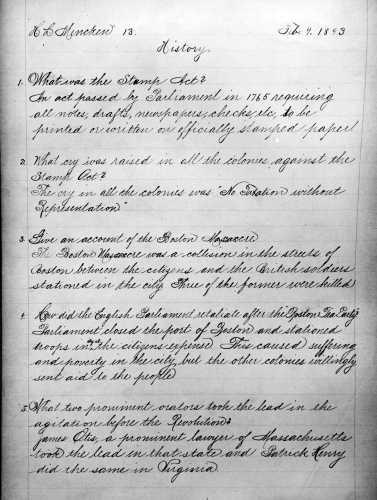 H L Mencken 13. Feb 9. 1893
History.
1. What was the Stamp Act?
An act passed by Parliament in 1765 requiring
all notes, drafts, newspapers, checks, etc, to be
printed or written on officially stamped paper
2. What cry was raised in all the colonies against the
Stamp Act?
The cry in all the colonies was "No Taxation without
Representation"
3. Give an account of the Boston Massacre
The Boston Massacre was a collision in the streets of
Boston between the citizens and the British soldiers
stationed in the city Three of the former were killed
4. How did the English Parliament retaliate after the Boston Tea Party
Parliament closed the port of Boston and stationed
troops in the citizens expense This caused suffering
and poverty in the city but the other colonies willingly
sent aid to the people
5. What two prominent orators took the lead in the
agitation before the Revolution?
James Otis, a prominent lawyer of Massachusetts
took the lead in that state and Patrick Henry
did the same in Virginia